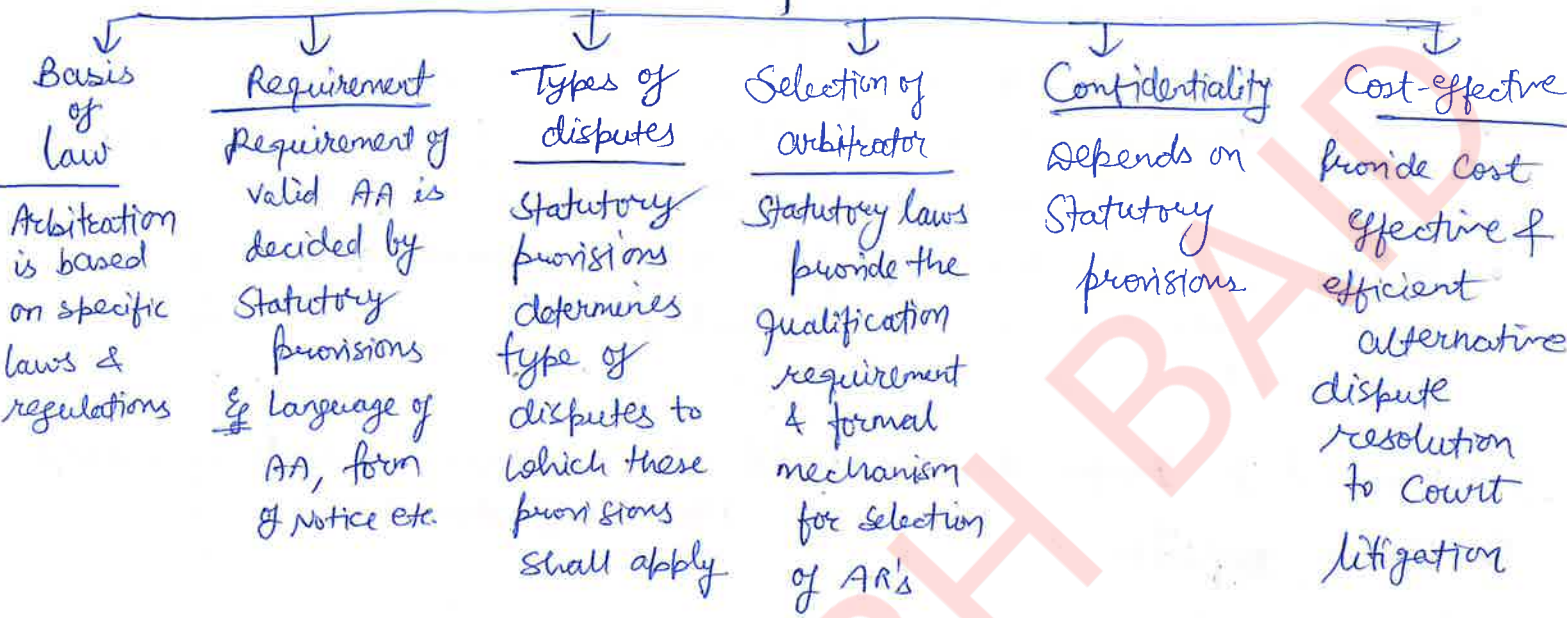 Basis
of
law
Arbitration
is based
on specific
laws &
regulations
Requirement
Requirement of
valid AA is
decided by
Statutory
provisions
Eg Language of
AA, form
of Notice etc.
Types of
disputes
Statutory
provisions
determines
type of
disputes to
which these
provisions
shall apply
Selection of
arbitrator
Statutory laws
provide the
qualification
requirement
& formal
mechanism
for selection
of AR's
Confidentiality
Depends on
Statutory
provisions
Cost-effective
Provide cost
effective &
efficient
alternative
dispute
resolution
to Court
litigation
PH BAID